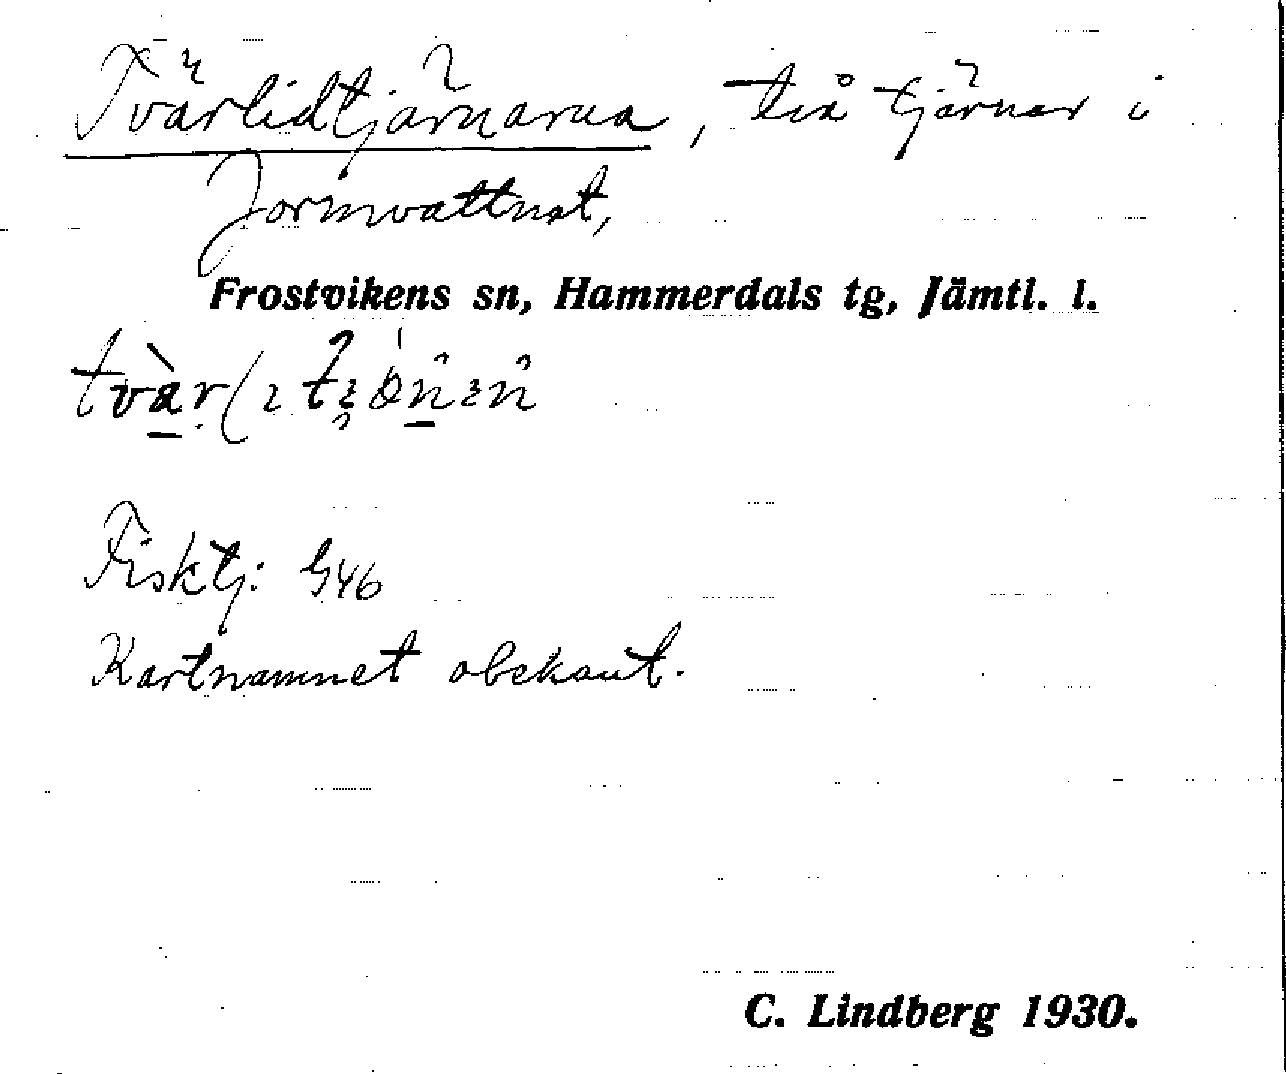 Tvärlidtjärnarna, två tjärnar i
Jormvattnet,
Frostvikens sn, Hammerdals tg, Jämtl. l.
Fisktj: 446
Kartnamnet obekant.
C. Lindberg 1930.